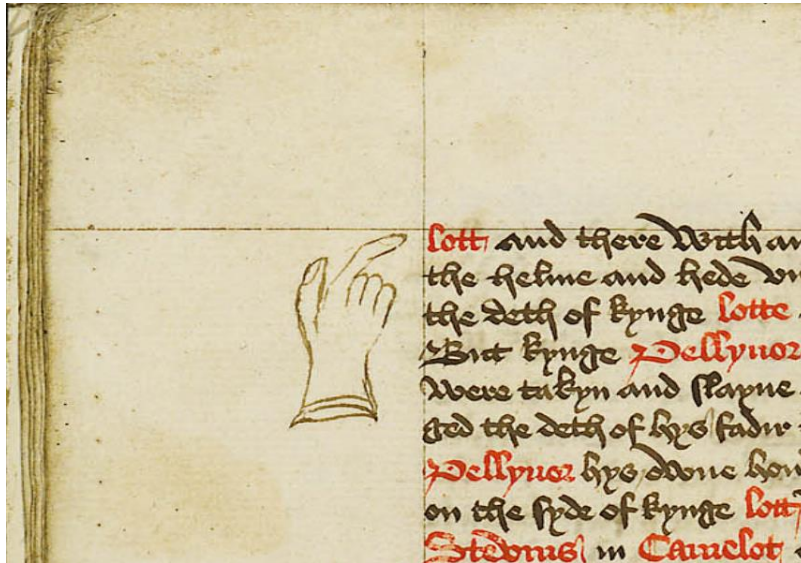 lott and there with an
the helme and hede vn
the deth of kynge lotte
But kynge Pellynor
were takyn and slayne
ged the deth of hys fadir
Pellynor hys owne hon
on the syde of kynge lott
in Camelot